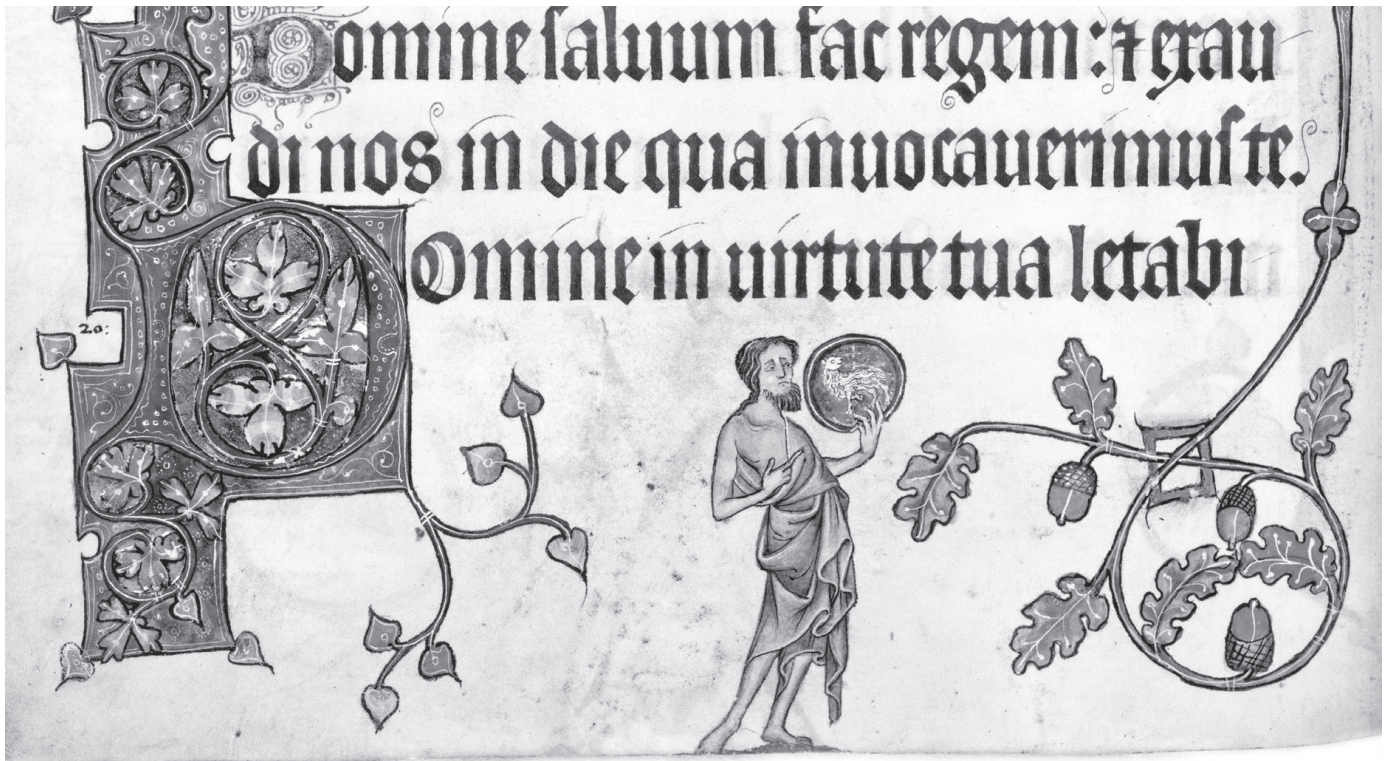 Domine saluum fac regem: ⁊ exau
di nos in die qua inuocauerimus te.
Domine in uirtute tua letabi
20: